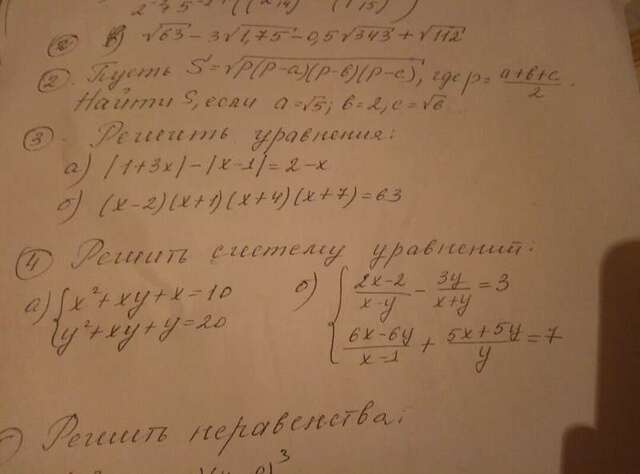 в) √63 - 3√1,75 - 0,5√343 + √112
② Пусть S = √p(p-a)(p-b)(p-c), где p = (a+b+c)/2.
Найти S, если a = √5; b = 2, c = √6
③ Решить уравнения:
а) |1+3x| - |x-1| = 2-x
б) (x-2)(x+1)(x+4)(x+7) = 63
④ Решить систему уравнений:
а) { x² + xy + x = 10
y² + xy + y = 20
б) { (2x-2)/(x-y) - 3y/(x+y) = 3
(6x-6y)/(x-1) + (5x+5y)/y = 7
Решить неравенства: